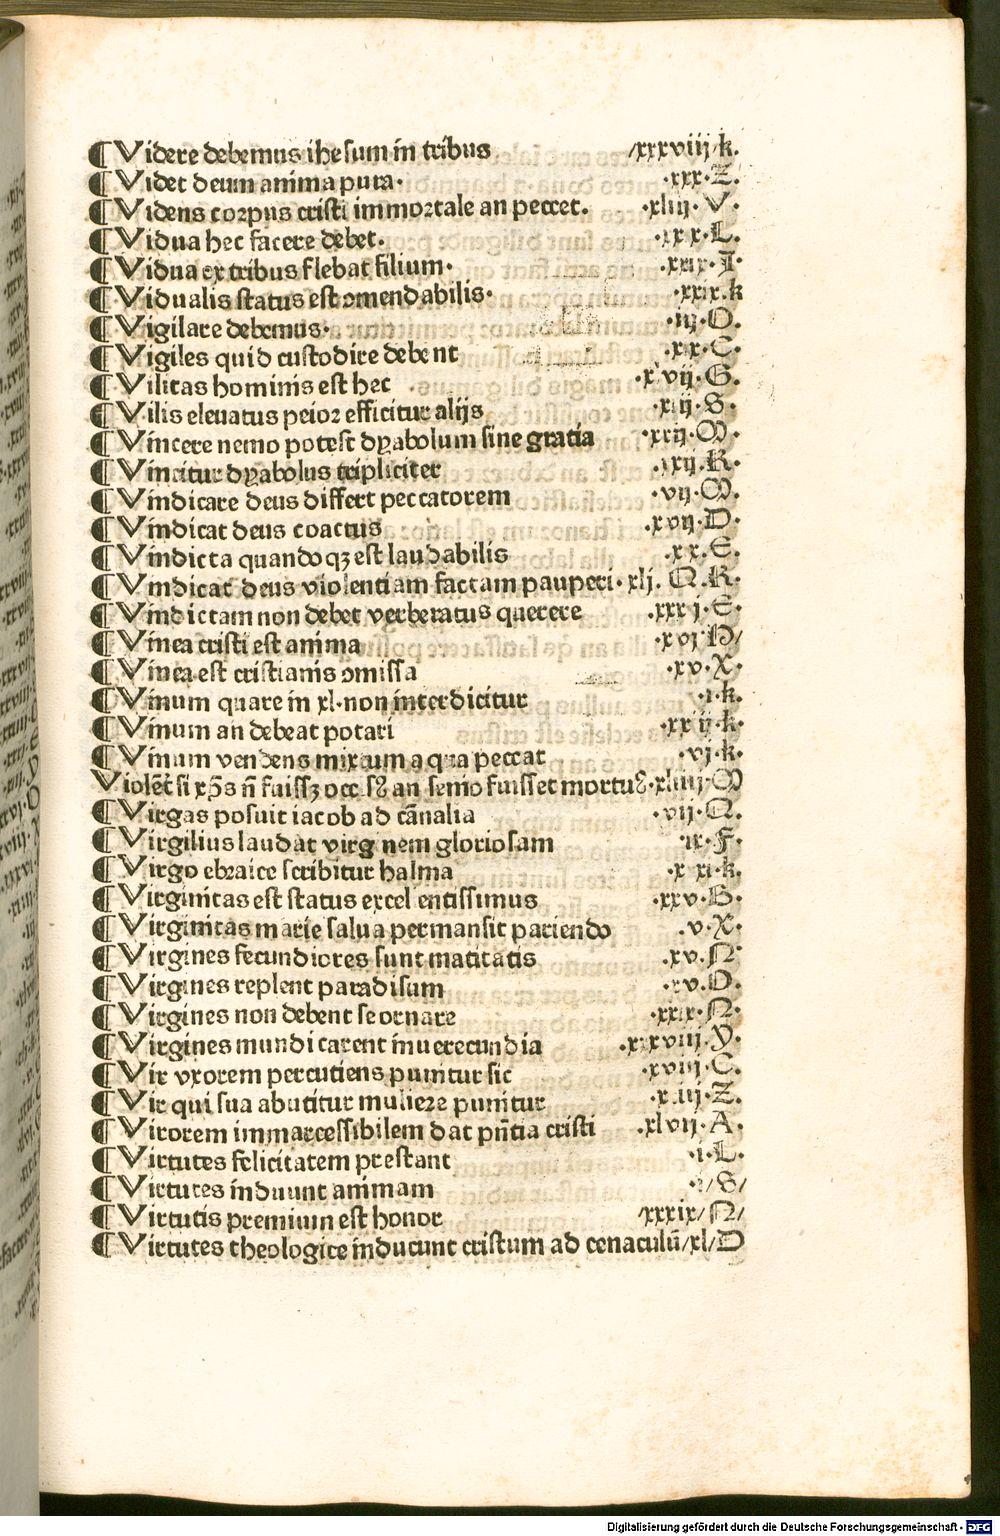 ¶ Videre debemus ihesum in tribus /xxxviij/k.
¶ Videt deum anima pura· ·xxx·Z.
¶ Videns corpus cristi immortale an peccet. ·xliij·V.
¶ Vidua hec facere debet. ·xxx·L.
¶ Vidua ex tribus flebat filium· ·xxix·I·
¶ Vidualis status est ↄmendabilis· ·xxix.k
¶ Vigilare debemus· ·iij·O.
¶ Vigiles quid custodire debent ·xix·C.
¶ Vilitas hominis est hec ·xvij·G.
¶ Vilis eleuatus peior efficitur alijs ·xiij·S.
¶ Vincere nemo potest dyabolum sine gratia ·xxij·M.
¶ Vincitur dyabolus tripliciter ·xxij·R.
¶ Vindicare deus differt peccatorem ·vij·M.
¶ Vindicat deus coactus ·xvij·D·
¶ Vindicta quandoqꝫ est laudabilis ·xx·E.
¶ Vindicat deus violentiam factam pauperi·xlj. Q.R.
¶ Vindictam non debet verberatus querere ·xxxj·E·
¶ Vinea cristi est anima ·xvj·H/
¶ Vinea est cristianis ↄmissa ·xv·X·
¶ Vinum quare in xl·non interdicitur ·i·k.
¶ Vinum an debeat potari ·xxij·k·
¶ Vinum vendens mixtum aqua peccat ·vj·k·
Violēt si xp̄s n̄ fuissꝫ occ an senio fuisset mortuꝰ·xliiij·M
¶ Virgas posuit iacob ad cānalia ·vij·Q.
¶ Virgilius laudat virginem gloriosam ·ix·F.
¶ Virgo ebraice scribitur halma ·xxi·k.
¶ Virginitas est status excellentissimus ·xxv·B.
¶ Virginitas marie salua permansit pariendo .v·X·
¶ Virgines fecundiores sunt matitatis .xv.N
¶ Virgines replent paradisum ·xv.O.
¶ Virgines non debent se ornare ·xxix·N·
¶ Virgines mundi carent inuerecundia ·xxxviij·Y·
¶ Vir vxorem percutiens punitur sic ·xviij·C.
¶ Vir qui sua abutitur muliere punitur Z.
¶ Virorem immarcessibilem dat pn̄tia cristi ·xlvij·A·
¶ Virtutes felicitatem prestant ·i·L·
¶ Virtutes induunt animam /S/
¶ Virtutis premium est honor /xxxix/N/
¶ Virtutes theologice inducunt cristum ad cenaculū/xl/D
Digitalisierung gefördert durch die Deutsche Forschungsgemeinschaft - DFG